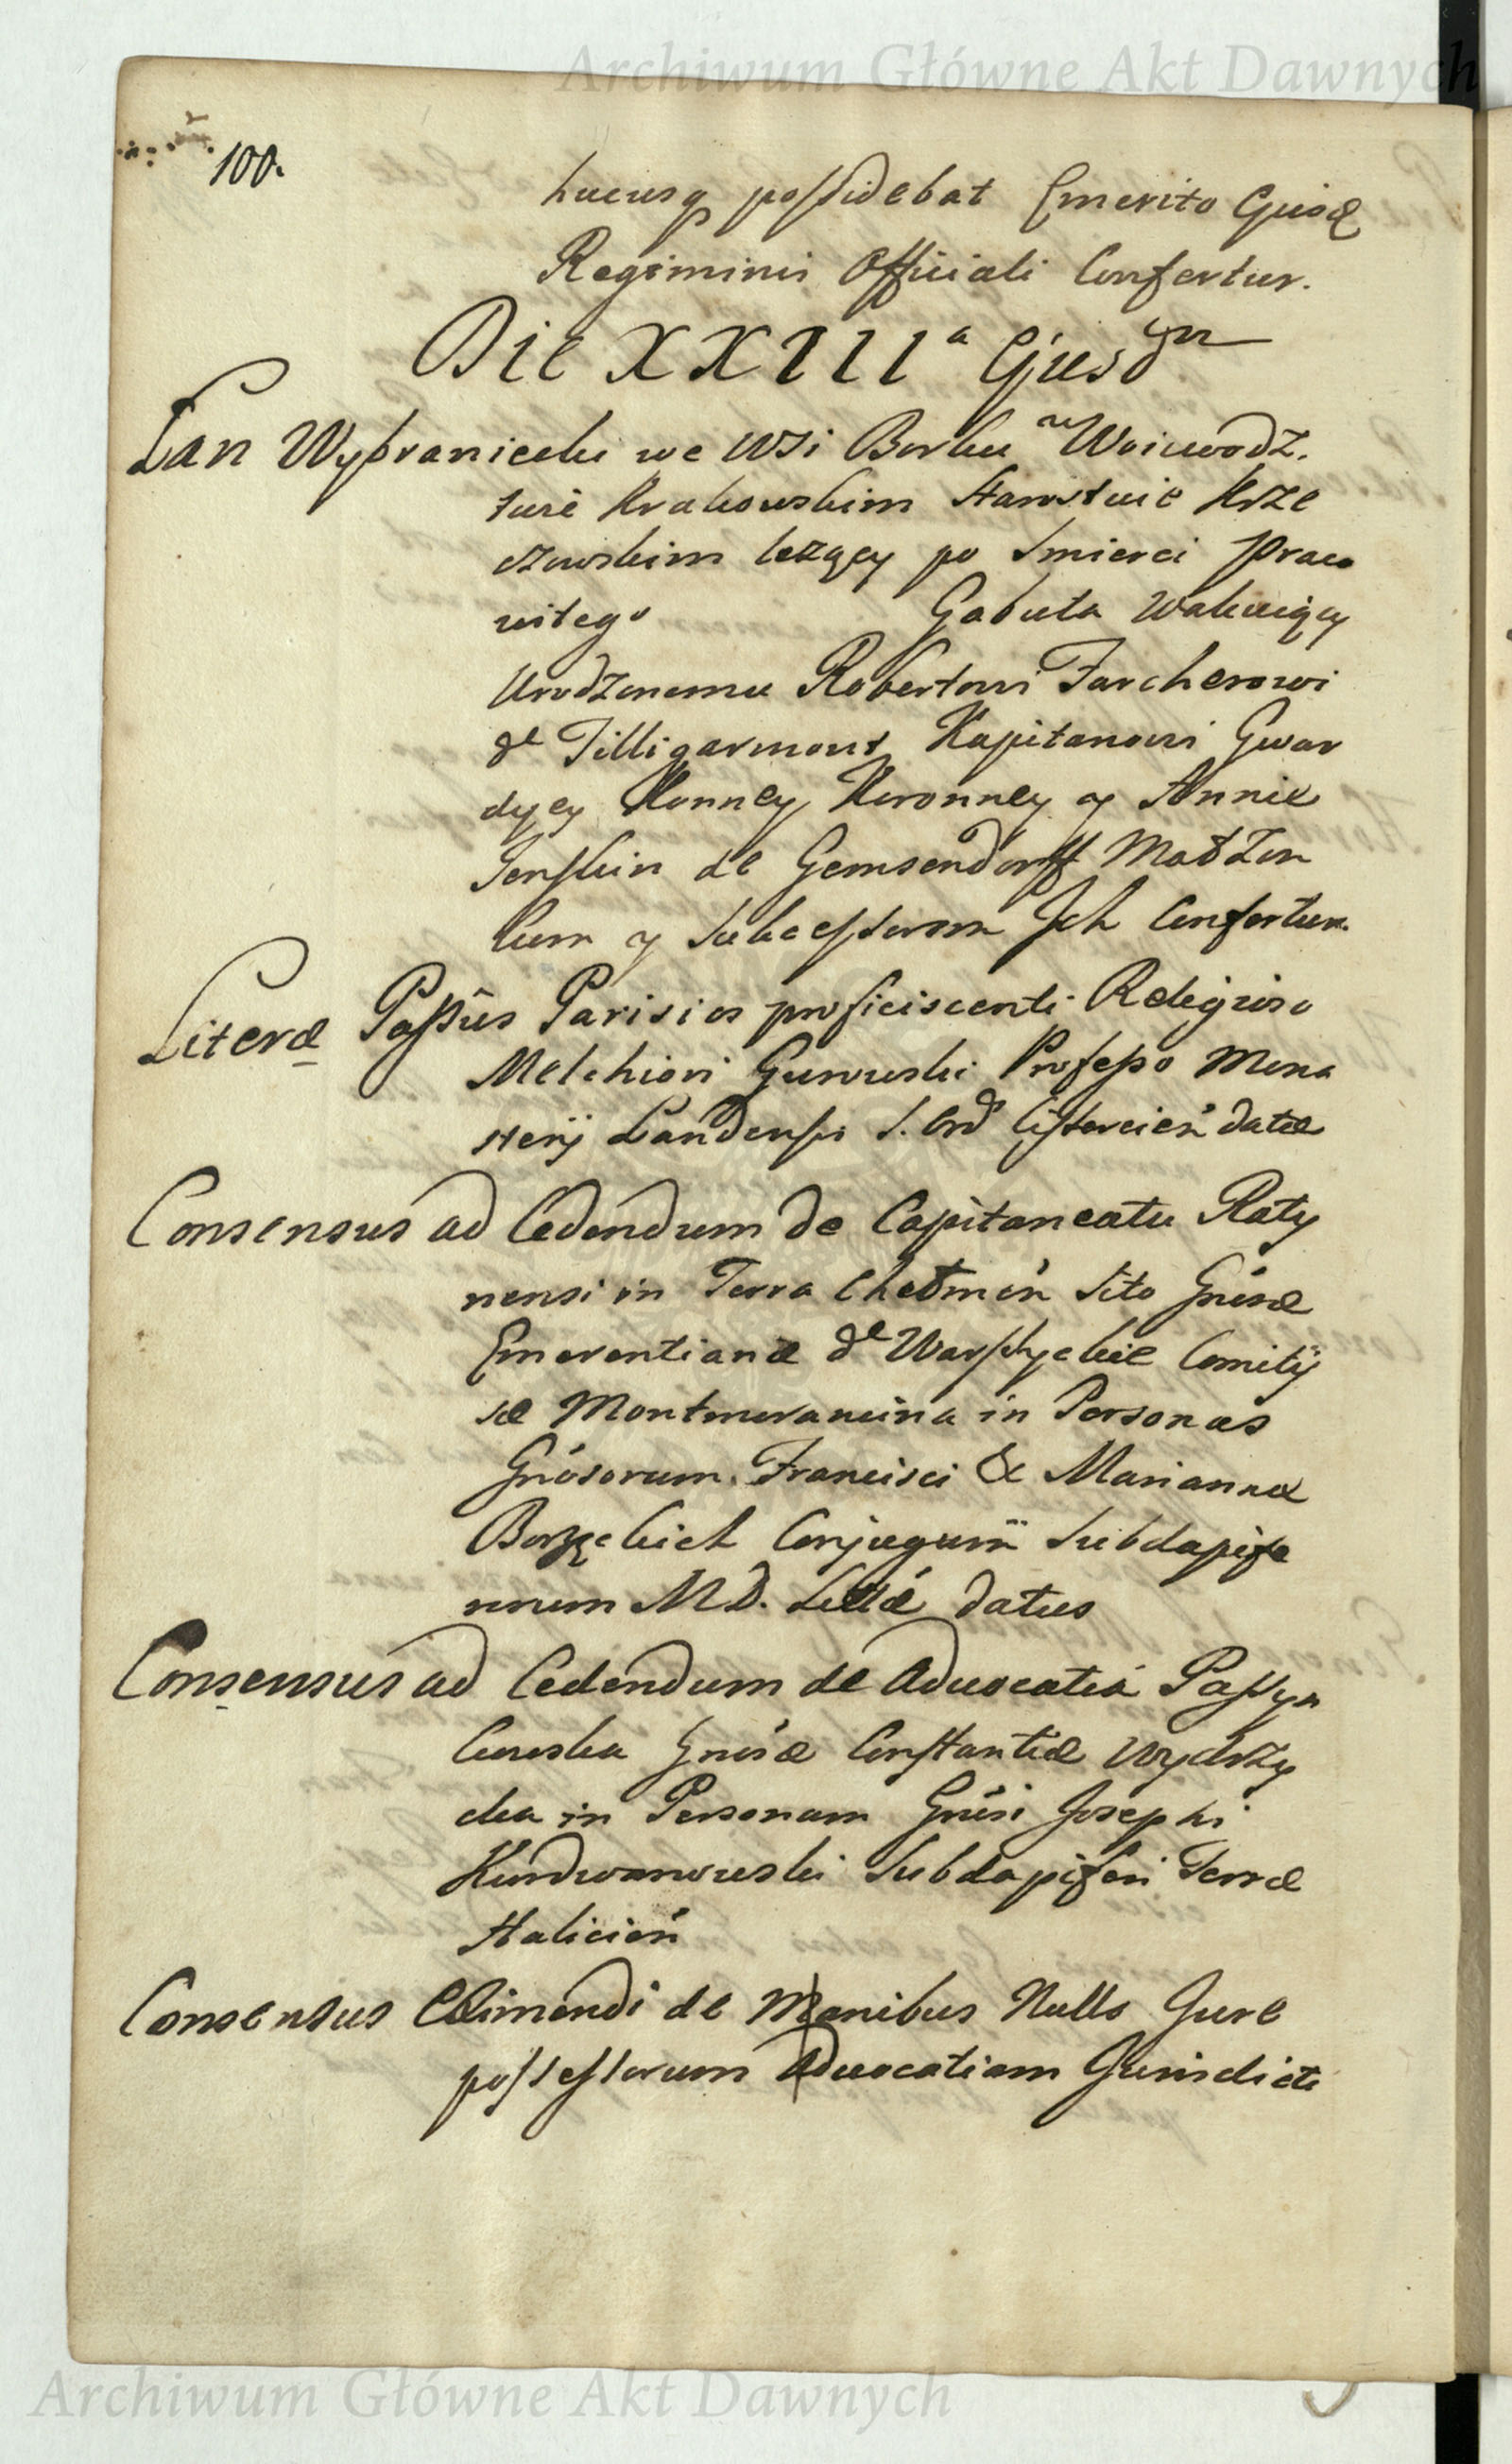 Archiwum Główne Akt Dawnych
100.
hucusq possidebat Emerito Gusd
Regiminis Officiali Confertur.
Die XXIII a Ejusd
Łan Wybraniecki we Wsi Borku w Woiewodz.
twie Krakowskim Starostwie Krze
czowskim lezący po Smierci Praco
witego Gabuta Wakuiący
Urodzonemu Robertowi Farcherowi
de Tilligarmont Kapitanowi Gwar
dyey Konney Koronney y Annie
de Gemsendorff Małżon
kom y Sukcessorom Jch Confertur.
Literæ Passûs Parisios proficiscenti Religioso
Melchiori Gurowski Professo Mona
sterij Landensi S. Ord Cistercień datæ
Consensus ad Cedendum de Capitaneatu Raty
nensi in Terra Chełmeń Sito Gnosæ
Emerentianæ de Warszyckie Comitis
sæ Montmorancina in Personas
Gnosorum Francisci & Mariannæ
Borzęckich Conjugum Subdapife
rorum M D. Littæ datus
Consensus ad Cedendum de Advocatiâ Passyn
kowska Gnosæ Constantiæ Wydrzy
cka in Personam Gnosi Josephi
Kurdwanowski Subdapiferi Terræ
Halicień
Consensus Eximendi de Manibus Nullo Jure
possessorum Advocatiam Jurisdicti
Archiwum Główne Akt Dawnych